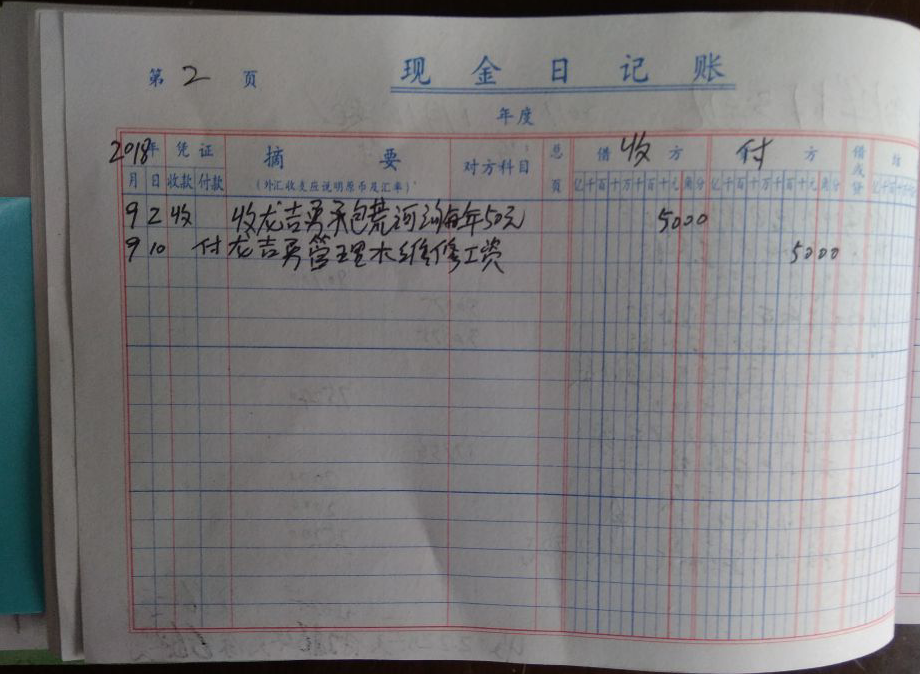 第 2 页 现金日记账
年度
2018年 凭证 摘要 对方科目 总页 借 收 方 付 方 借或贷 结
月 日 收款 付款 (外汇收支应说明原币及汇率) 亿千百十万千百十元角分 亿千百十万千百十元角分 亿千百十
9 2 收 收龙吉勇承包荒河每年50元 5000
9 10 付 龙吉勇管理水维修工资 5000